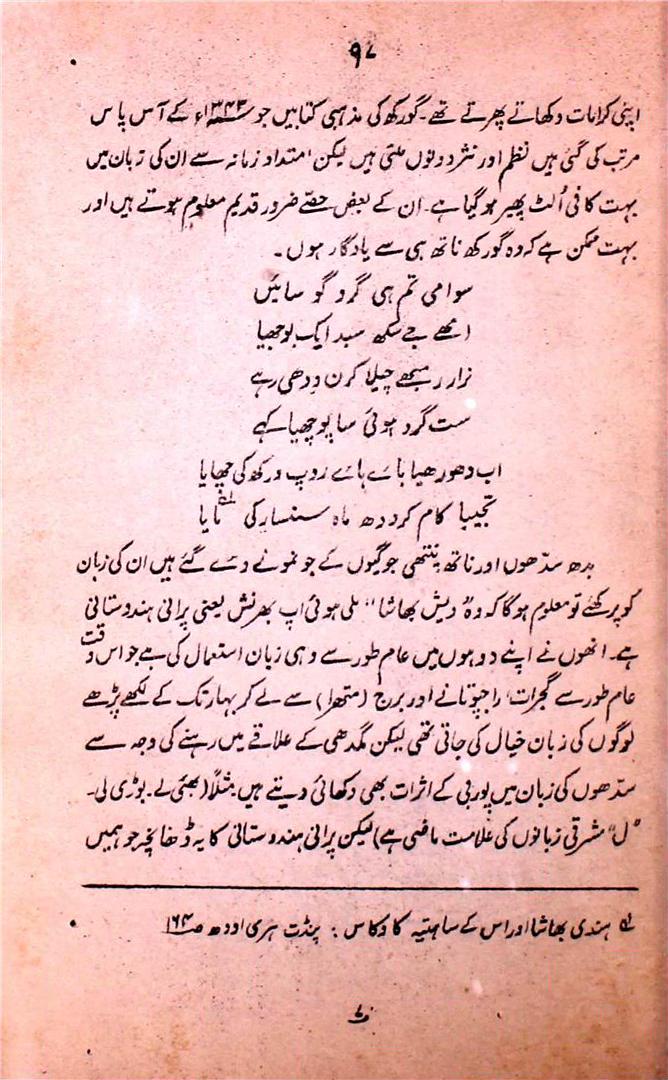 ۹۷
اپنی کرامات دکھاتے پھرتے تھے۔ گورکھ کی مذہبی کتابیں جو ۱۳۴۳ء کے آس پاس
مرتب کی گئی ہیں نظم اور نثر دونوں ملتی ہیں لیکن امتداد زمانہ سے ان کی زبان میں
بہت کافی اُلٹ پھیر ہوگیا ہے۔ ان کے بعض حصّے ضرور قدیم معلوم ہوتے ہیں اور
بہت ممکن ہے کہ وہ گورکھ ناتھ ہی سے یادگار ہوں۔
سوامی تم ہی گرد گو سائیں
امھے جے سکھ سبد ایک بوجھیا
نرار ربھے چیلا کرن ودھی رہے
ست گرد ہوئی سا پوچھیا کہے
اب دھو رھیا باے ہاے روپ ورکھ کی چھایا
تجیبا کام کرددھ ماہ سنسار کی مایا لہ
بدھ سدّھوں اور ناتھ پنتھی جوگیوں کے جو نمونے دے گئے ہیں ان کی زبان
کو پرکھئے تو معلوم ہوگا کہ وہ "دیش بھاشا" ملی ہوئی اپ بھرنش یعنی پرانی ہندوستانی
ہے۔ انھوں نے اپنے دوہوں میں عام طور سے وہی زبان استعمال کی ہے جو اس وقت
عام طور سے گجرات، راجپوتانے اور برج (متھرا) سے لے کر بہار تک کے لکھے پڑھے
لوگوں کی زبان خیال کی جاتی تھی لیکن مگدھی کے علاقے میں رہنے کی وجہ سے
سدّھوں کی زبان میں پوربی کے اثرات بھی دکھائی دیتے ہیں مثلاً (بھئی لے۔ بوڑی لی۔
"ل" مشرقی زبانوں کی علامت ماضی ہے) لیکن پرانی ہندوستانی کا یہ ڈھانچہ جو ہمیں
لہ ہندی بھاشا اور اس کے ساہتیہ کا وکاس : پنڈت ہری اودھ ص۱۶۴
۷